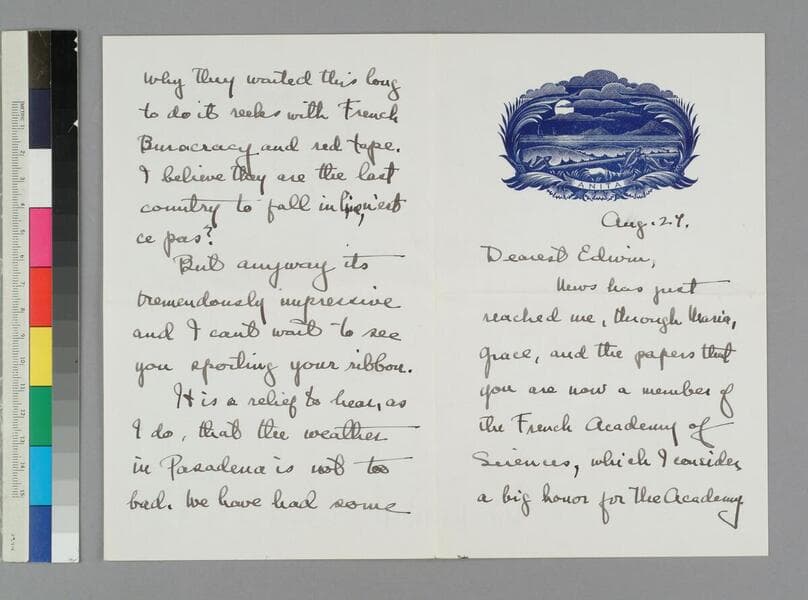 ANITA
Aug. 27.
Dearest Edwin,
News has just
reached me, through Maria,
Grace, and the papers that
you are now a member of
the French Academy of
Sciences, which I consider
a big honor for the Academy
why they waited this long
to do it reeks with French
Burocracy and red tape.
I believe they are the last
country to fall in line, n'est
ce pas?
But anyway its
tremendously impressive
and I cant wait to see
you sporting your ribbon.
It is a relief to hear, as
I do, that the weather
in Pasadena is not too
bad. We have had some